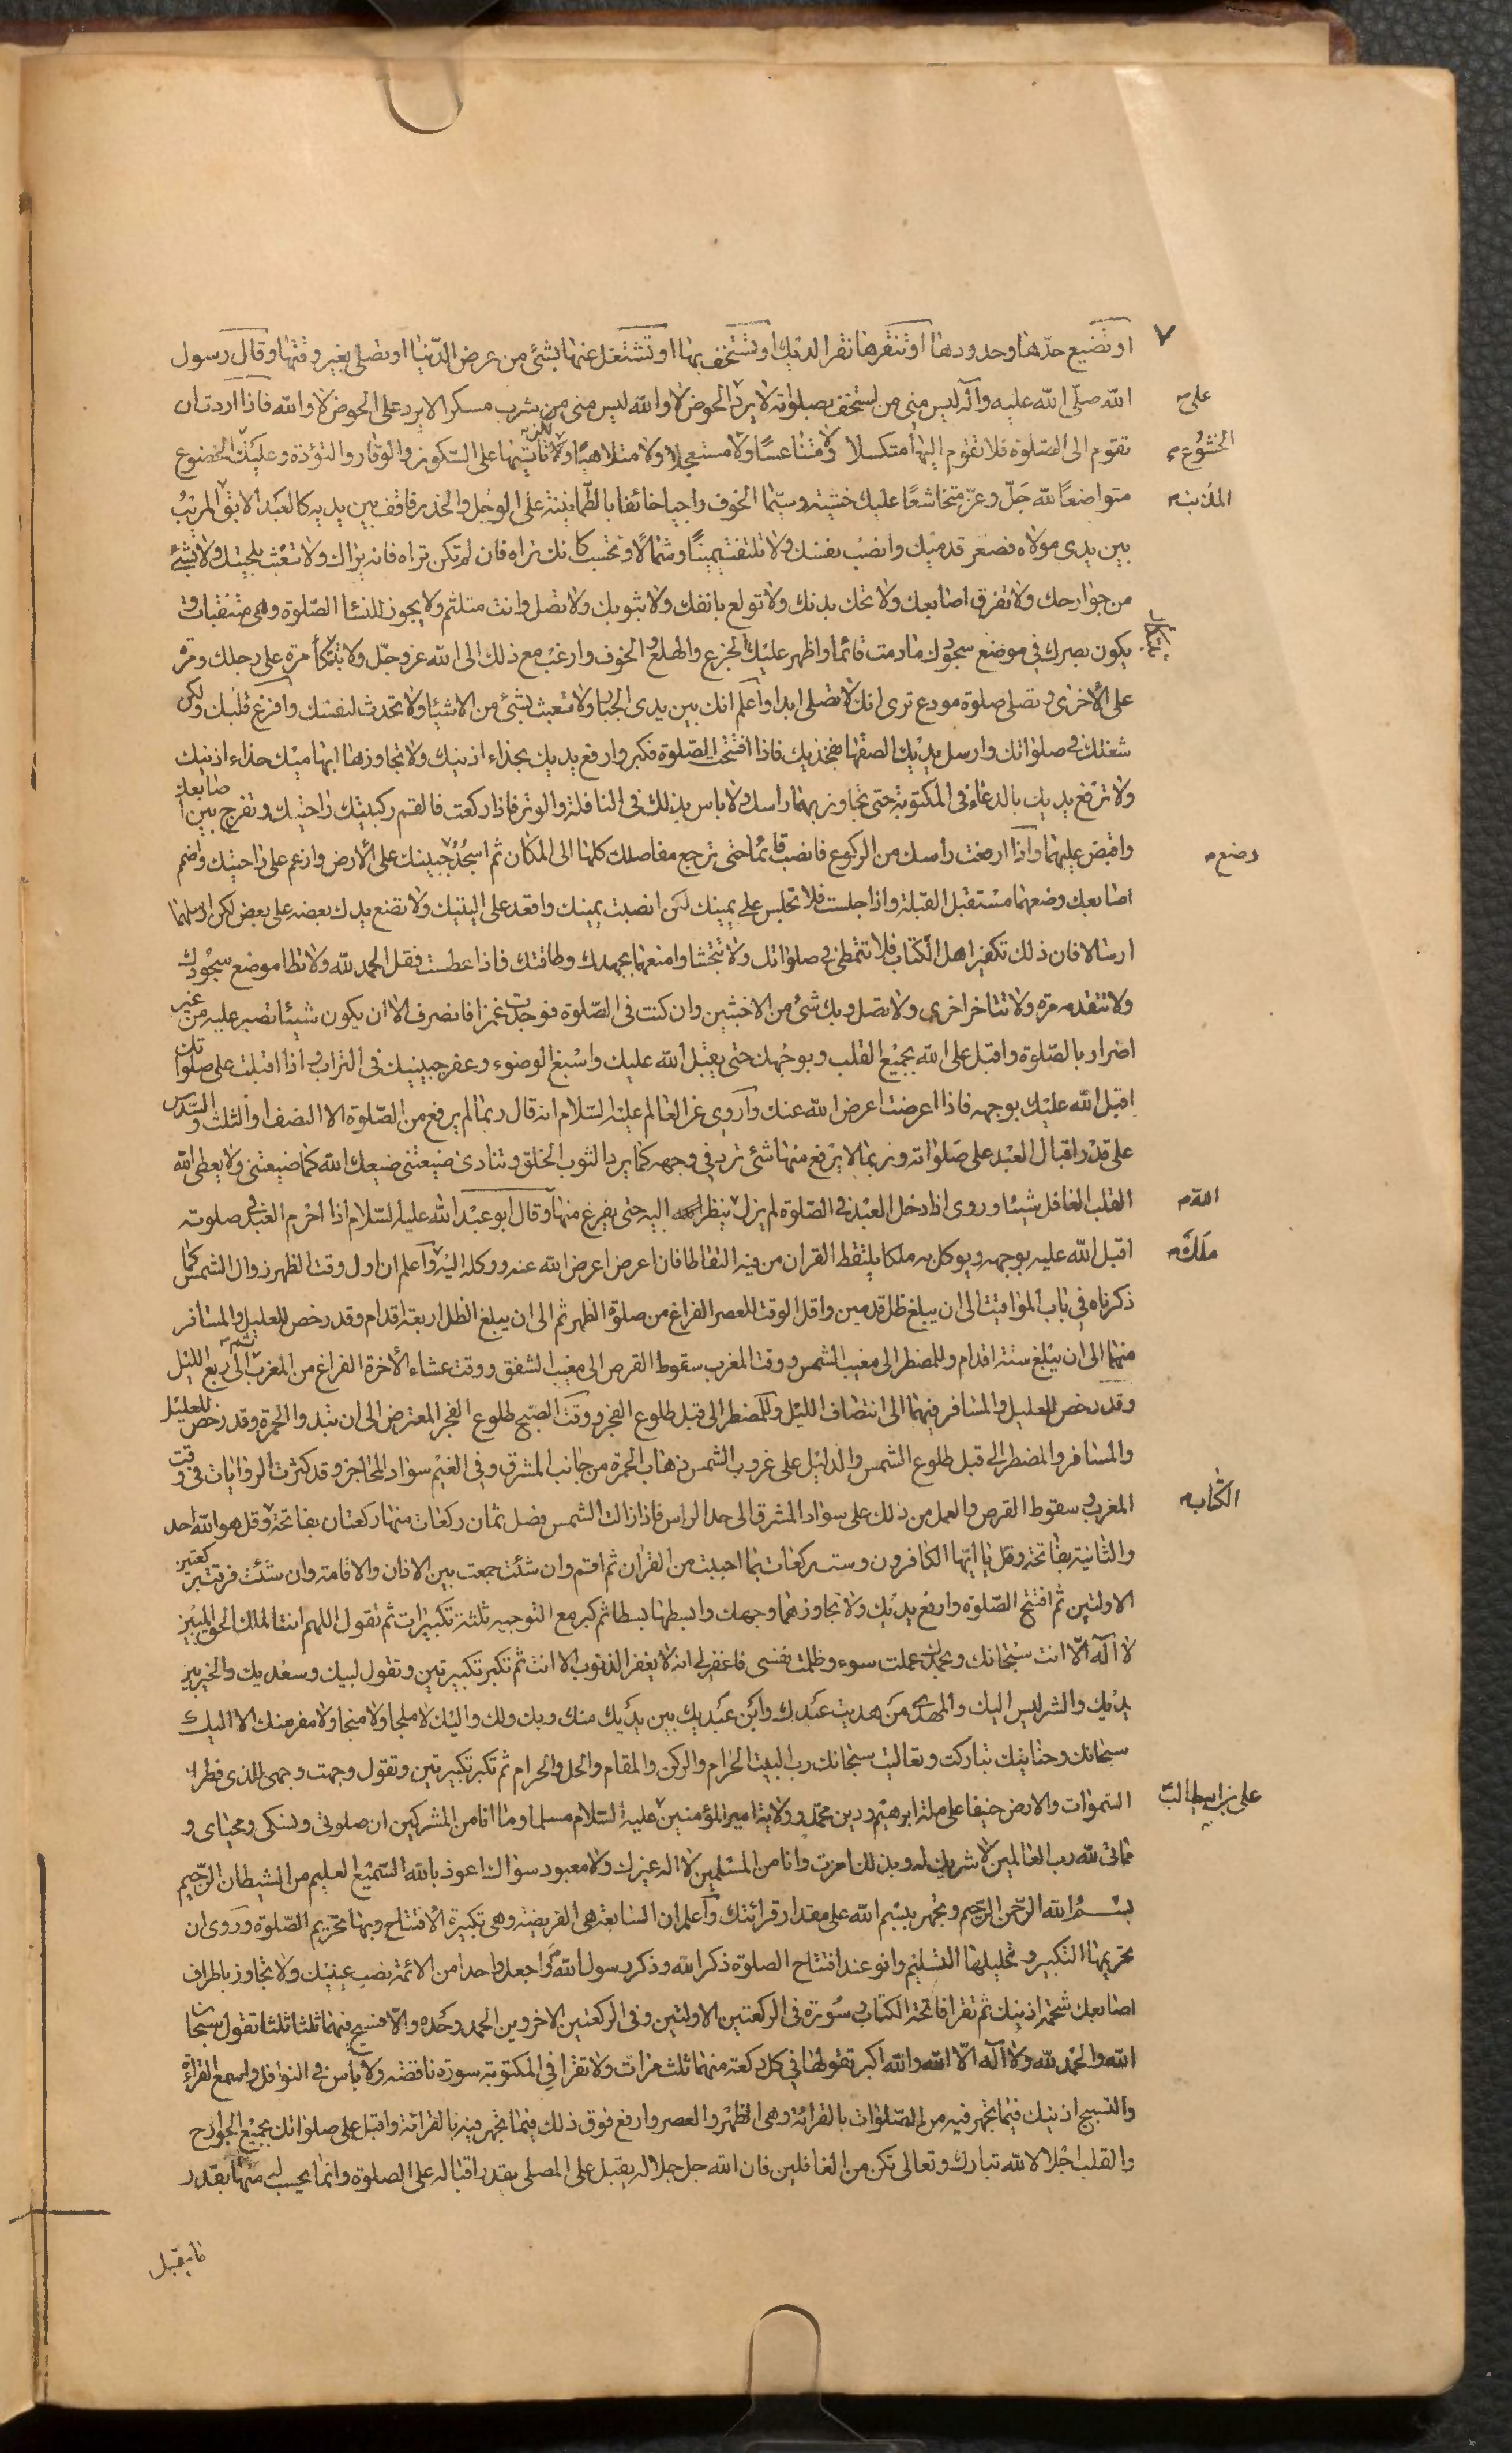 ٧
او تضيع حدّها وحدودها او تنقرها نقر الديك او تستخف بها او تشتغل عنها بشئ من عرض الدّنيا او تصلى بغير وقتها وقال رسول
الله صلّى الله عليه وآله ليس منى من استخف بصلوته لا يرد الحوض لا والله ليس منى من شرب مسكرا لا يرد على الحوض لا والله فاذا اردت ان
على
تقوم الى الصّلوة فلا تقوم اليها متكسلا ولا متناعسًا ولا مستعجلا ولا متلاهيًا ولكن تأتيها على السّكون والوقار والتؤدة وعليك الخضوع
الخشوع
متواضعًا لله جَلّ وعزّ متخاشعًا عليك خشيته وسيّما الخوف واجيا خائفا بالطّمانينة على الوجل والحذر فاقف بين يديه كالعبد الابق المريب
المذنب
بين يدى مولاه فصف قدميك وانصب نفسك ولا تلتفت يمينًا وشمالًا وتحسب كانك تراه فان لم تكن تراه فانه يراك ولا تعبث بلحيتك ولا بشئ
من جوارحك ولا تفرق اصابعك ولا تحك بدنك ولا تولع بانفك ولا بثوبك ولا تصل وانت متلثم ولا يجوز للنساء الصّلوة وهى متنقبات و
يكون بصرك في موضع سجودك مادمت قائما واظهر عليك الجزع والهلع والخوف وارغب مع ذلك الى الله عز وجلّ ولا تتّكأ مرة على رجلك ومرة
على الأخرى وتصلى صلوة مودع ترى انك لا تصلى ابدا واعلم انك بين يدى الجبار ولا تعبث بشئ من الاشياء ولا تحدث لنفسك وافرغ قلبك وليكن
شغلك في صلوٰتك وارسل يديك الصقها بفخذيك فاذا افتتحت الصّلوة فكبر وارفع يديك بحذاء اذنيك ولا تجاوزها ابهاميك حذاء اذنيك
ولا ترفع يديك بالدعاء فى المكتوبة حتى تجاوز بهما راسك ولا باس بذلك فى النافلة والوتر فاذا ركعت فالقم ركبتيك راحتيك وتفرج بين اصابعك
واقبض عليهما واذا رفعت راسك من الركوع فانصب قائما حتى ترجع مفاصلك كلها الى المكان ثم اسجد جبينك على الأرض وارغم على راحتيك واضم
وضع
اصابعك وضعهما مستقبل القبلة واذا جلست فلا تجلس على يمينك لكن انصبت يمينك واقعد على اليتيك ولا تضع يدك بعضه على بعض لكن ارسلهما
ارسالا فان ذلك تكفير اهل الكتاب فلا تتمطى في صلوٰتك ولا تتجشا وامنعهما بجهدك وطاقتك فاذا عطست فقل الحمد لله ولا تطا موضع سجودك
ولا تتقدمه مرّة ولا تتاخر اخرى ولا تصل وبك شئ من الاخبثين وان كنت فى الصّلوة فوجدت غمزا فانصرف الا ان يكون شيئا تصبر عليه من غير
اضرار بالصّلوة واقبل على الله بجميع القلب وبوجهك حتى يقبل الله عليك واسبغ الوضوء وعفر جبينيك فى التراب و اذا اقبلت على صلوٰتك
اقبل الله عليك بوجهه فاذا اعرضت اعرض الله عنك واروى عن العالم عليه السّلام انه قال ربما لم يرفع من الصّلوة الا النصف او الثلث والسّدس
على قدر اقبال العبد على صلواته وربما لا يرفع منها شئ ترد في وجهه كما يرد الثوب الخلق وتنادى ضيعتنى ضيعك الله كما ضيعتنى ولا يعطى الله
القلب الغافل شيئا وروى اذا دخل العبد في الصّلوة لم يزل ينظر اليه حتى يفرغ منها وقال ابو عبد الله عليه السّلام اذا احرم العبد في صلوته
الله
اقبل الله عليه بوجهه ويوكل به ملكا يلتقط القران من فيه التقاطا فان اعرض اعرض الله عنه ووكله اليه واعلم ان اول وقت الظهر زوال الشمس كما
ملَك
ذكرناه في باب المواقيت الى ان يبلغ ظل قدمين واقل الوقت للعصر الفراغ من صلوة الظهر ثم الى ان يبلغ الظل اربعة اقدام وقد رخص للعليل والمسافر
منهما الى ان يبلغ ستة اقدام وللمضطر الى مغيب الشمس ووقت المغرب سقوط القرص الى مغيب الشفق ووقت عشاء الأخرة الفراغ من المغرب ثم الى ربع الليل
وقد رخص للعليل والمسافر فيهما الى انتصاف الليل وللمضطر الى قبل طلوع الفجر ووقت الصّبح طلوع الفجر المعترض الى ان تبدو الحمرة وقد رخص للعليل
والمسافر والمضطر الى قبل طلوع الشمس والدليل على غروب الشمس ذهاب الحمرة من جانب المشرق وفى الغيم سواد المحاجز وقد كثرت الروايات فى وقت
المغرب و سقوط القرص والعمل من ذلك على سواد المشرق الى حد الراس فاذا زالت الشمس فصل ثمان ركعات منها ركعتان بفاتحة وقل هو الله احد
الكتاب
والثانية بفاتحة وقل يا ايّها الكافرون وست ركعات بما احببت من القران ثم اقم وان شئت جمعت بين الاذان والاقامة وان شئت فرقت بركعتين
الاولتين ثم افتتح الصّلوة وارفع يديك ولا تجاوزهما وجهك وابسطها بسطا ثم كبر مع التوجيه ثلثة تكبيرات ثم تقول اللهم انت الملك الحق المبين
لا اله الّا انت سبحانك وبحمدك عملت سوء وظلمت نفسى فاغفر لى انه لا يغفر الذنوب الا انت ثم تكبر تكبيرتين وتقول لبيك وسعديك والخير بين
يديك والشر ليس اليك والمهدى من هديت عبدك وابن عبديك بين يديك منك وبك ولك واليك لا ملجا ولا منجا ولا مفر منك الا اليك
سبحانك وحنانيك تباركت وتعاليت سبحانك رب البيت الحرام والركن والمقام والحل والحرام ثم تكبر تكبيرتين وتقول وجهت وجهى للذى فطر
السّموات والارض حنيفا على ملة ابرهيم ودين محمّد وولاية امير المؤمنين عليه السّلام مسلما وما انا من المشركين ان صلوتى ونسكى ومحياى و
على بن ابيطالب
مماتى لله رب العالمين لا شريك له وبذلك امرت وانا من المسلمين لا اله غيرك ولا معبود سواك اعوذ بالله السّميع العليم من الشيطان الرّجيم
بسم الله الرّحمن الرّحيم وتجهر ببسم الله على مقدار قرائتك واعلم ان السابعة هى الفريضة وهى تكبيرة الأفتتاح وبها تحريم الصّلوة وروى ان
تحريمها التكبير وتحليلها التسليم وانو عند افتتاح الصلوة ذكر الله وذكر رسول الله واجعل واحدا من الائمة نصب عينيك ولا تجاوز باطراف
اصابعك شحمة اذنيك ثم تقرا فاتحة الكتاب و سورة فى الركعتين الاولتين وفى الركعتين الاخروين الحمد وحده والّا فسبح فيهما ثلثا ثلثا تقول سبحان
الله والحمد لله ولا اله الّا الله والله اكبر تقولها في كل ركعة منهما ثلث مرات ولا تقرا في المكتوبة سورة ناقصة ولا باس في النوافل واسمع القراءة
والتسبيح اذنيك فيما تجهر فيه من الصّلوات بالقراءة وهى الظهر والعصر وارفع فوق ذلك فيما تجهر فيه بالقرائة واقبل على صلواتك بجميع الجوارح
والقلب اجلالا لله تبارك وتعالى تكن من الغافلين فان الله جل جلاله يقبل على المصلى بقدر اقباله على الصلوة وانما يحسب له منها بقدر
ما يقبل